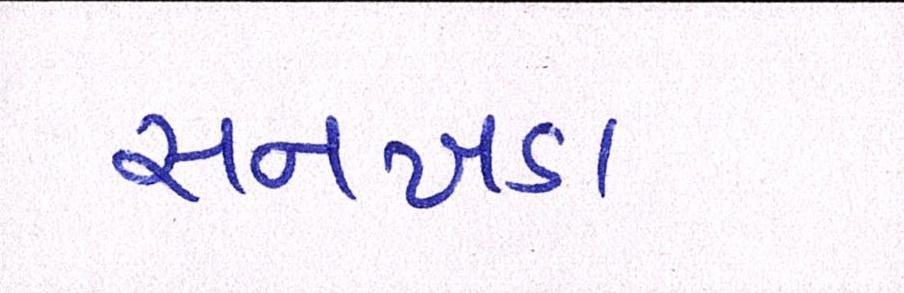 સનખડા